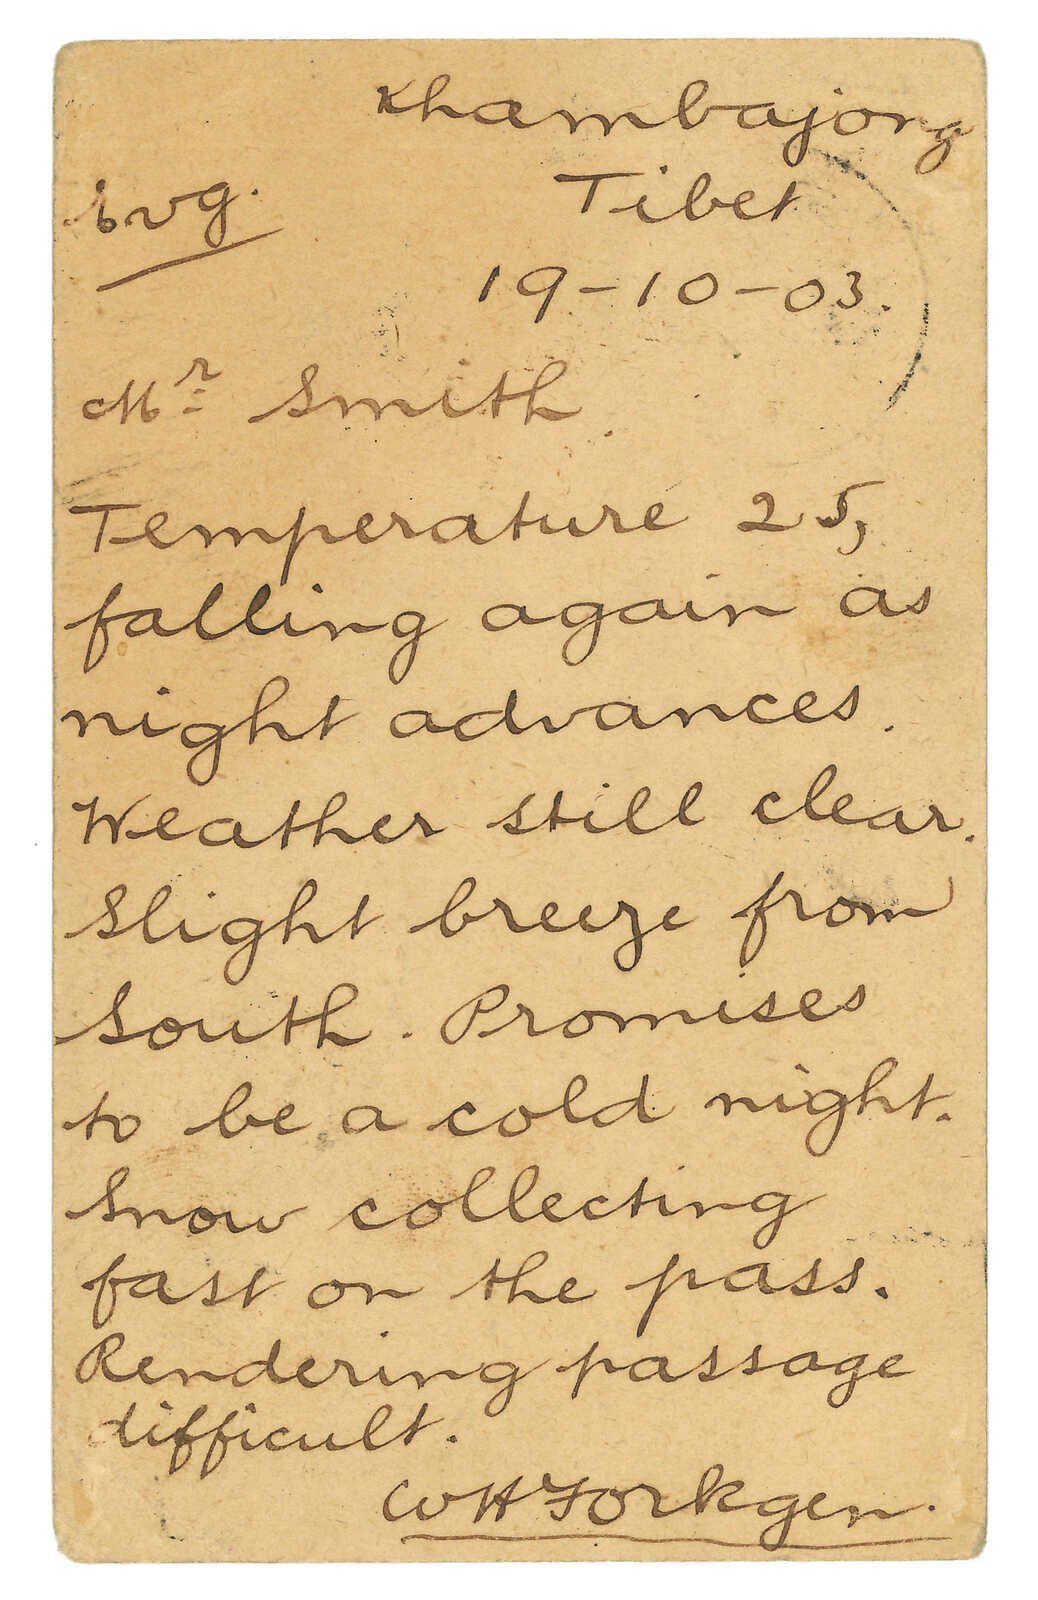 Khambajong
Tibet
Evg.
19-10-03.
Mr Smith
Temperature 25,
falling again as
night advances.
Weather still clear.
Slight breeze from
South. Promises
to be a cold night.
Snow collecting
fast on the pass.
Rendering passage
difficult.
WH